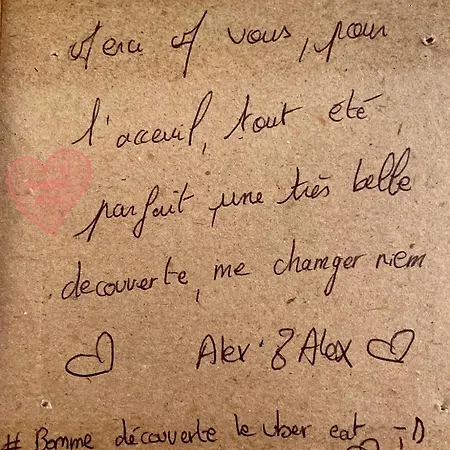 Merci A vous, pour
l'acceuil, tout été
parfait une très belle
decouverte, ne changer rien
Alex & Alex
# Bonne découverte le uber eat :D